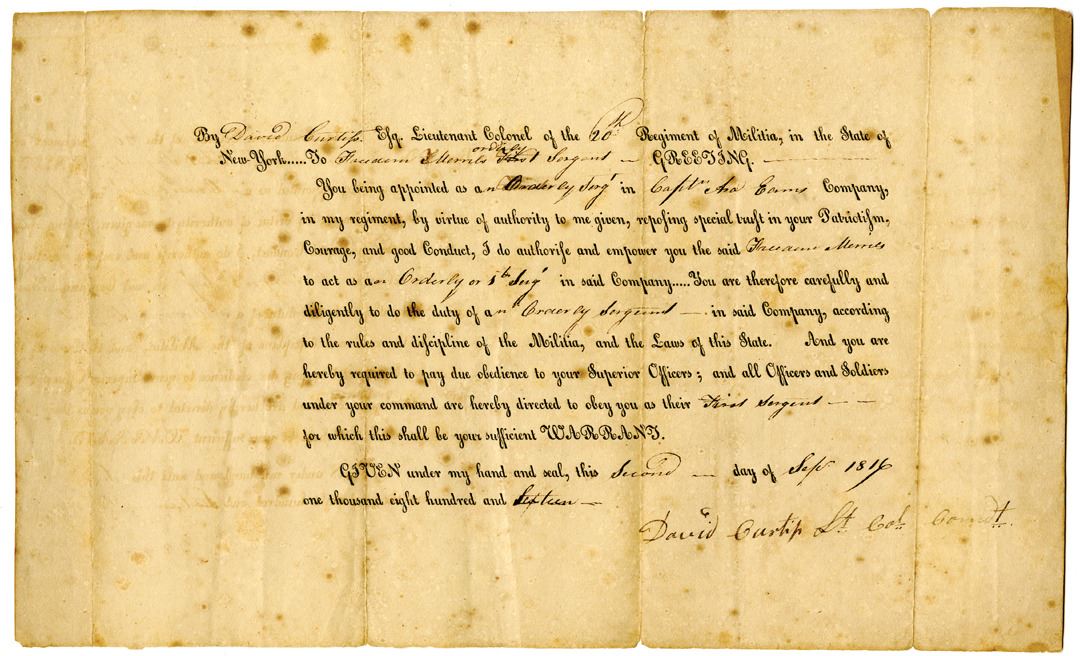 By David Curtiſs Esq. Lieutenant Colonel of the 20th Regiment of Militia, in the State of
New-York.....To Freedom Merrils orderly First Sergent — GREETING.
You being appointed as an Orderly Sergt in Captn Asa Eams Company,
in my regiment, by virtue of authority to me given, repoſing special truſt in your Patriotiſm,
Courage, and good Conduct, I do authoriſe and empower you the said Freedom Merrils
to act as an Orderly or 1st Sergt in said Company.....You are therefore carefully and
diligently to do the duty of an Orderly Sergent — in said Company, according
to the rules and diſcipline of the Militia, and the Laws of this State. And you are
hereby required to pay due obedience to your Superior Officers ; and all Officers and Soldiers
under your command are hereby directed to obey you as their First Sergent — —
for which this shall be your sufficient WARRANT.
GIVEN under my hand and seal, this Second — day of Sepr 1816
one thousand eight hundred and Sixteen —
David Curtiſs Lt. Col. Comdt.